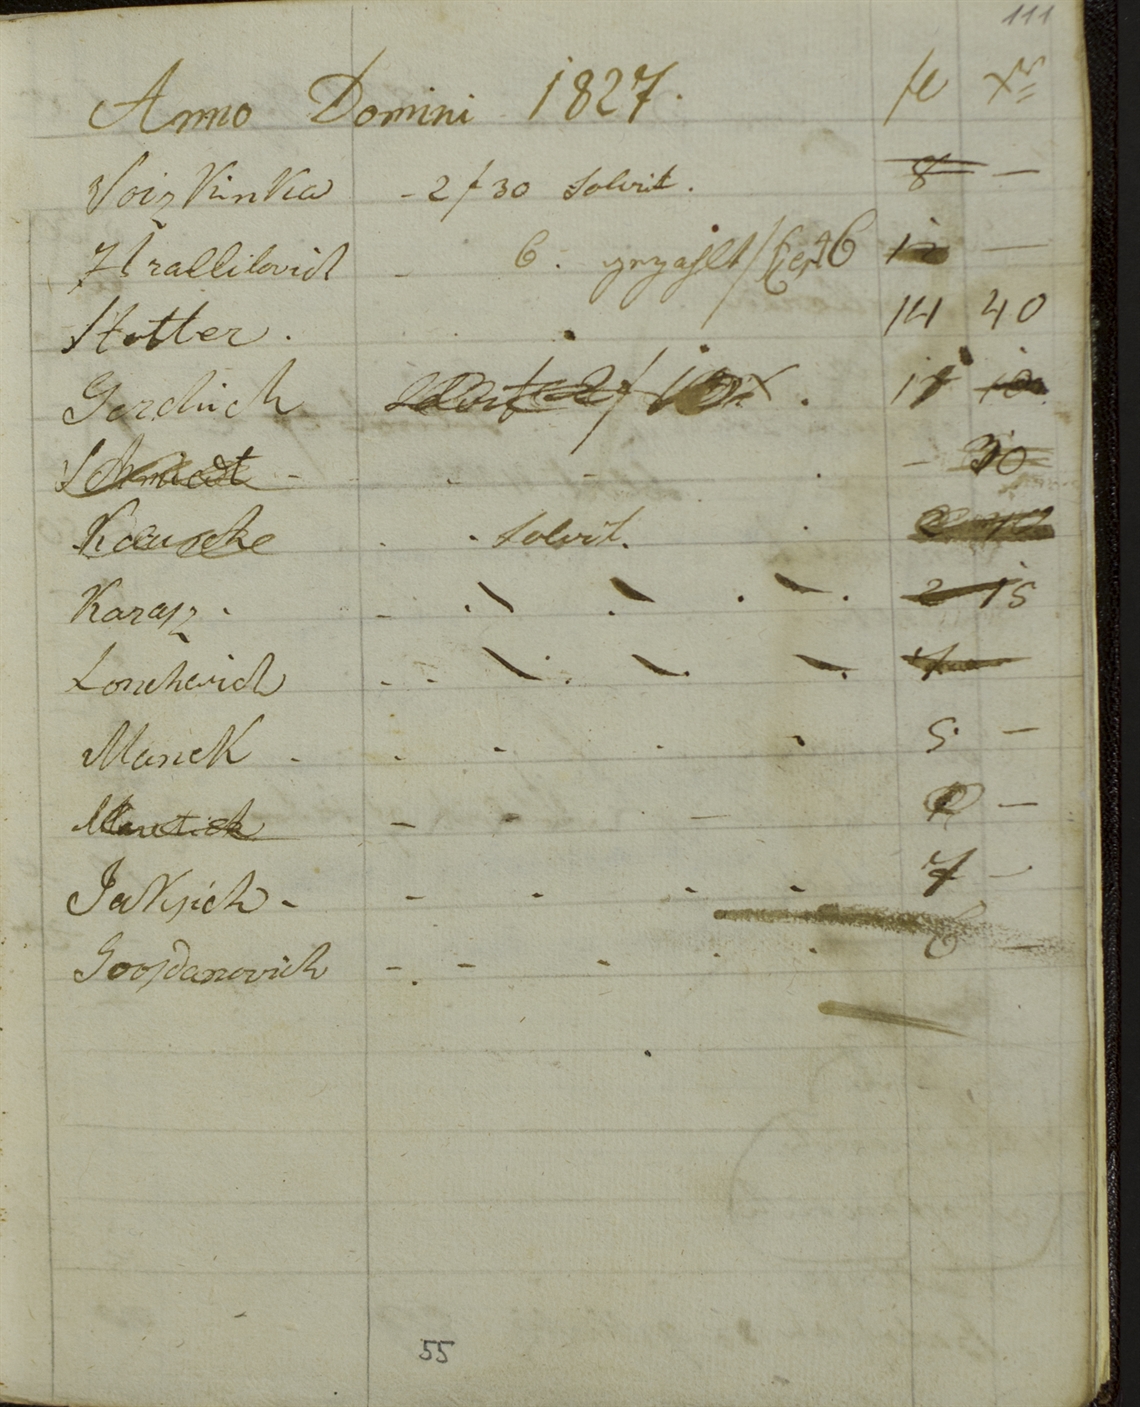 111
Anno Domini 1827. fl xr
VoizKinKa - 2 f 30 Solvit. 8 —
Hrallilovich - 6. gezahlt / 6 12 —
Stotter. 14 40
Gerchich 17 10
Schmiedt - - 30
Kauseke solvit.
Karasz. 2 15
Lonchevich
Manek 5 —
Mautick —
JaKsich - 7 —
Gvozdanovich 6 —
55